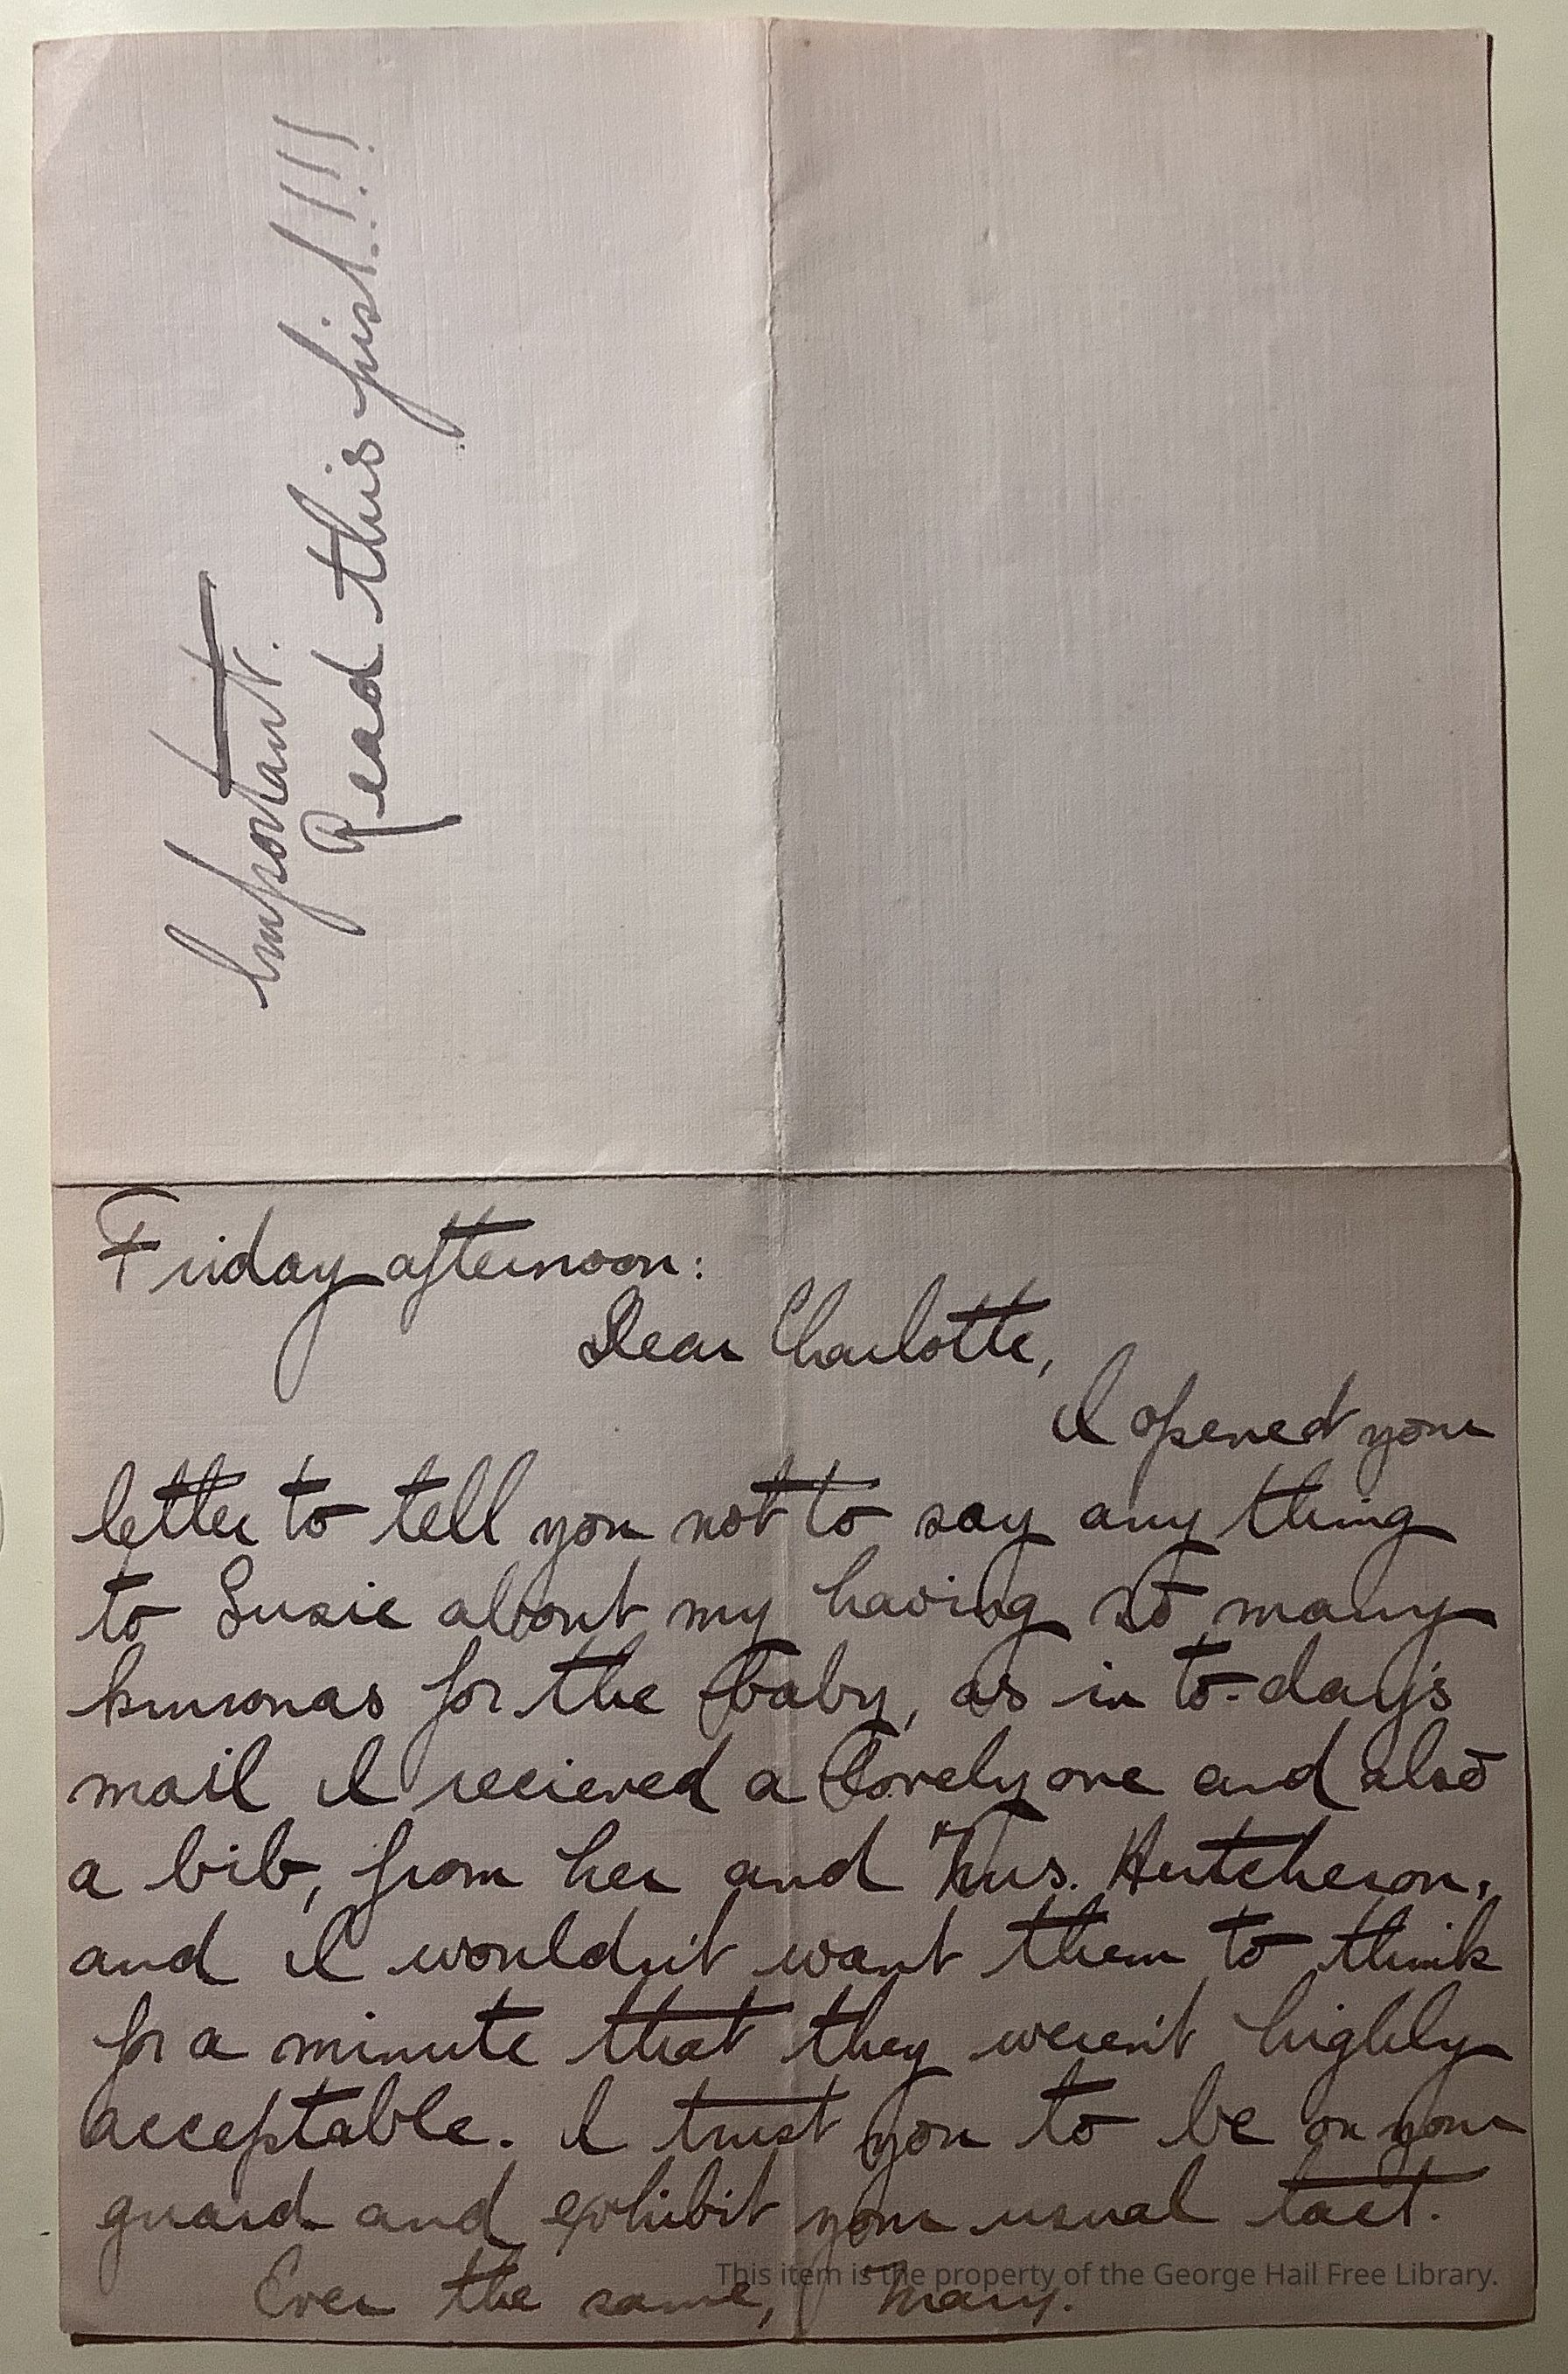 Important.
Read this first!!!!
Friday afternoon:
Dear Charlotte,
I opened your
letter to tell you not to say any thing
to Susie about my having so many
kimonas for the baby, as in to-day's
mail I recieved a lovely one and also
a bib, from her and Mrs. Hutcheson,
and I wouldn't want them to think
for a minute that they weren't highly
acceptable. I trust you to be on your
guard and exhibit your usual tact.
Ever the same, Mary.
This item is the property of the George Hail Free Library.